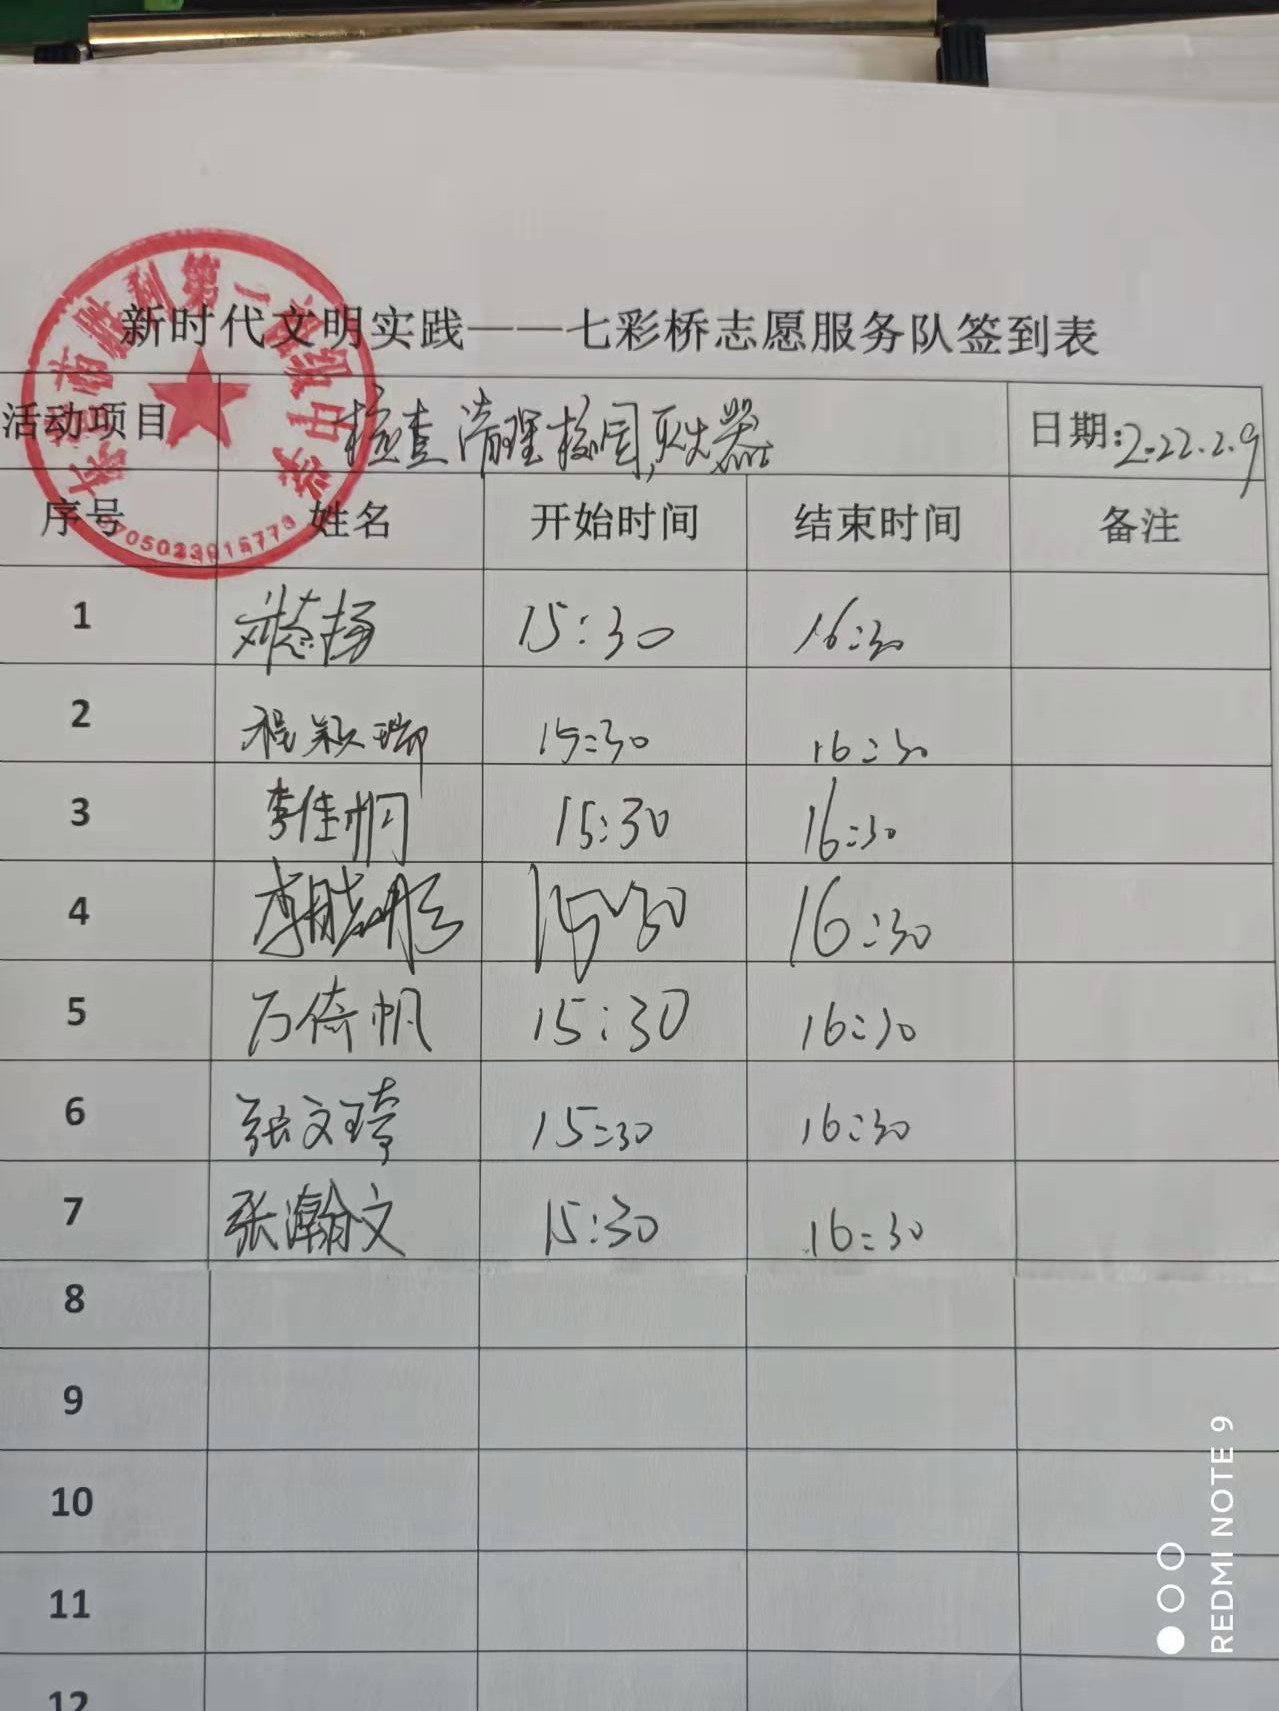 新时代文明实践——七彩桥志愿服务队签到表
活动项目 检查清理校园灭火器 日期:2022.2.9
序号 姓名 开始时间 结束时间 备注
1 刘志扬 15:30 16:30
2 程颖瑞 15:30 16:30
3 李佳桐 15:30 16:30
4 李 15:30 16:30
5 万倚帆 15:30 16:30
6 张文琦 15:30 16:30
7 张瀚文 15:30 16:30
8
9
10
11
12
第一初级中学
REDMI NOTE 9